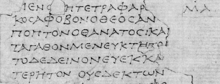 ΛΕΝΟ ΗΤΕΤΡΑΦΑΡ ΑΙΑ
ΚΟΣΑΦΟΒΟΝΟΘΕΟΣΑΝ
ΠΟΠΤΟΝΟΘΑΝΑΤΟΣΙΚΑΙ
ΤΑΓΑΘΟΝΜΕΝΕΥΚΤΗΤΟΙ
ΤΟΔΕΔΕΙΝΟΝΕΥΕΚΚΑ
ΤΕΡΗΤΟΝ ΟΥΔΕΚΤΩΝ